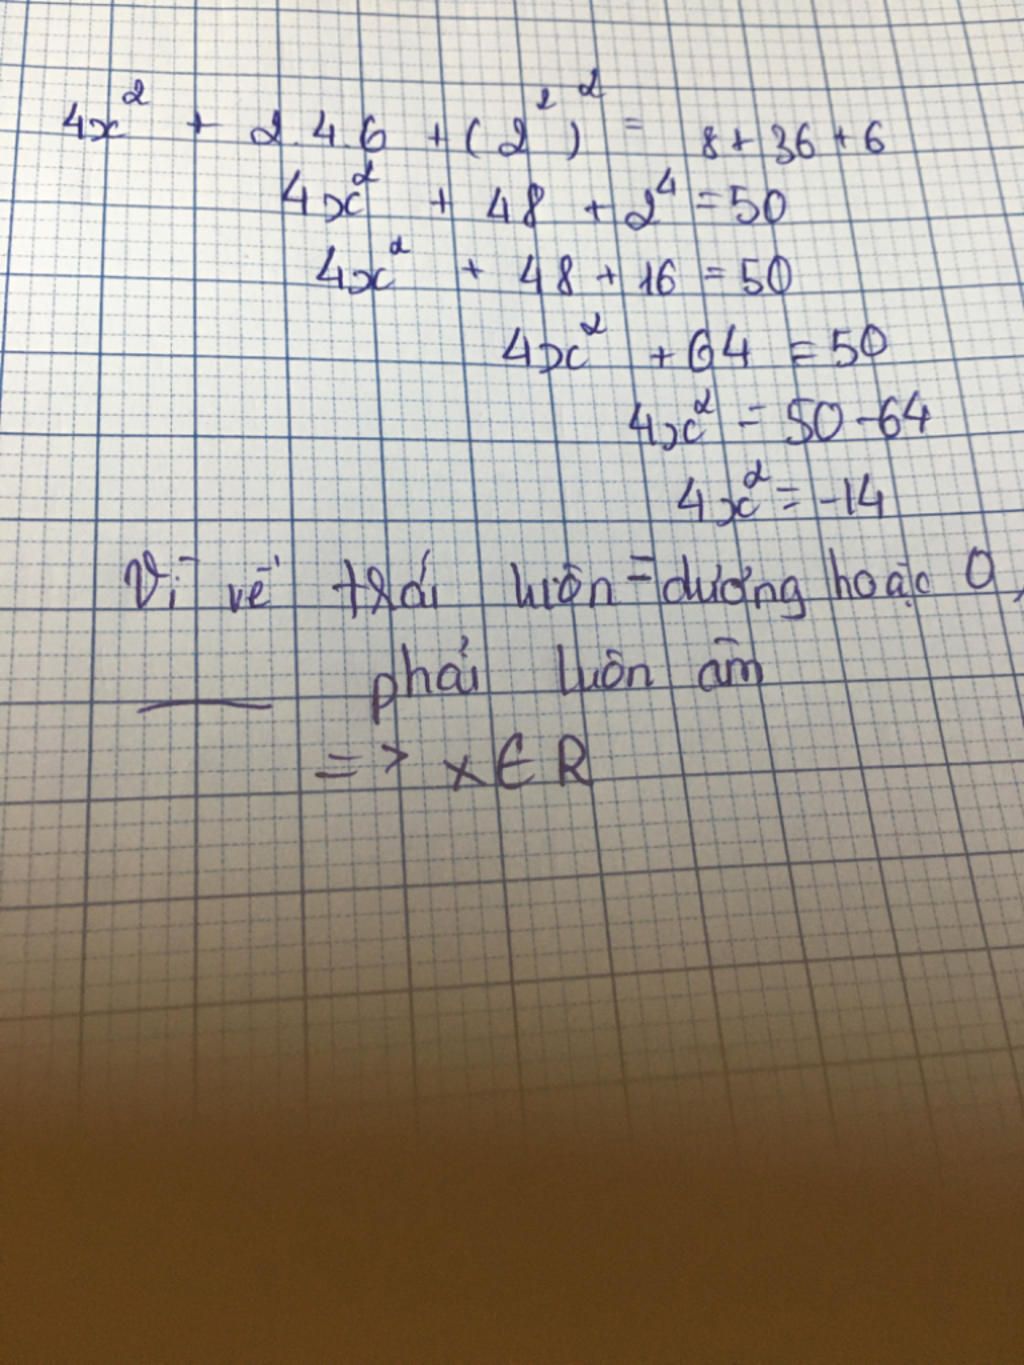 4x² + 2.4.6 + (2²)² = 8 + 36 + 6
4x² + 48 + 2⁴ = 50
4x² + 48 + 16 = 50
4x² + 64 = 50
4x² = 50 - 64
4x² = -14
Vì vế trái luôn dương hoặc 0,
phải luôn âm
=> x ∈ R